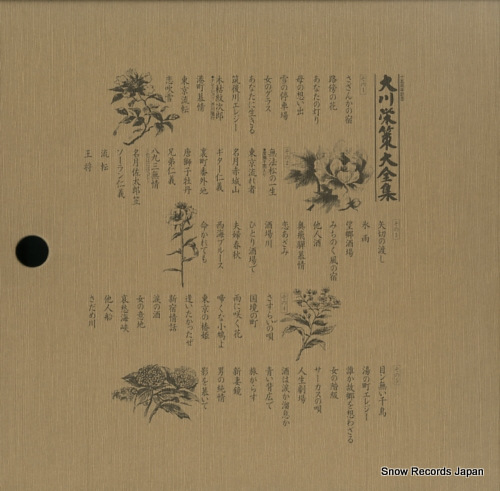 大川栄策大全集
さざんかの宿
路傍の花
あなたの灯り
母の想い出
雪の停車場
女のグラス
あなたに生きる
筑後川エレジー
木枯紋次郎
港町慕情
東京流転
恋吹雪
無法松の一生
東京流れ者
名月赤城山
ギター仁義
裏町番外地
唐獅子牡丹
兄弟仁義
八九三無情
名月佐太郎笠
ソーラン仁義
流転
王将
矢切の渡し
氷雨
望郷酒場
みちのく風の宿
他人酒
奥飛騨慕情
恋あざみ
酒場川
ひとり酒場で
夫婦春秋
西海ブルース
命かれても
さすらいの唄
国境の町
雨に咲く花
啼くな小鳩よ
東京の椿姫
逢いたかったぜ
新宿情話
涙の酒
女の意地
哀愁海峡
他人船
さだめ川
目ン無い千鳥
湯の町エレジー
誰か故郷を想わざる
女の階級
サーカスの唄
人生劇場
酒は涙か溜息か
青い背広で
旅がらす
新妻鏡
男の純情
影を慕いて
Snow Records Japan